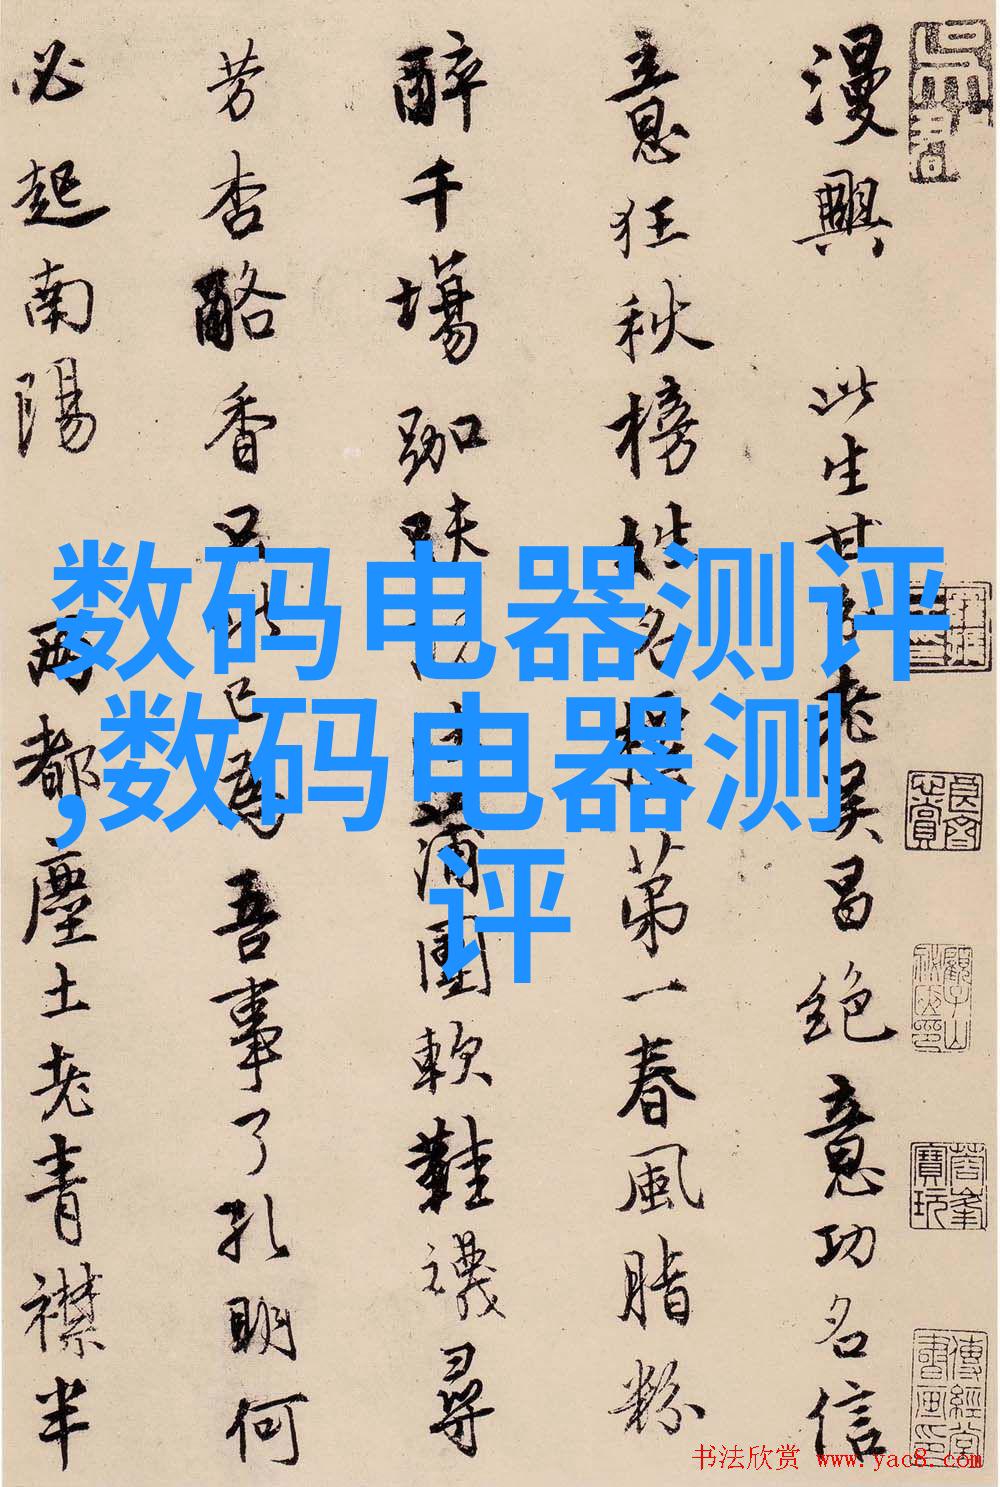 漫興 此生甘老吳昌絶意功名信
意狂秋榜姓名第一春風脂粉
醉千塲跏趺蒲團軟鞋襪尋
芳杏酪香只此已爲吾事了孔明何
必起南陽 兩都塵土老青襟半
数码电器测评
,数码电器测
评
书法欣赏 www.yac8.com